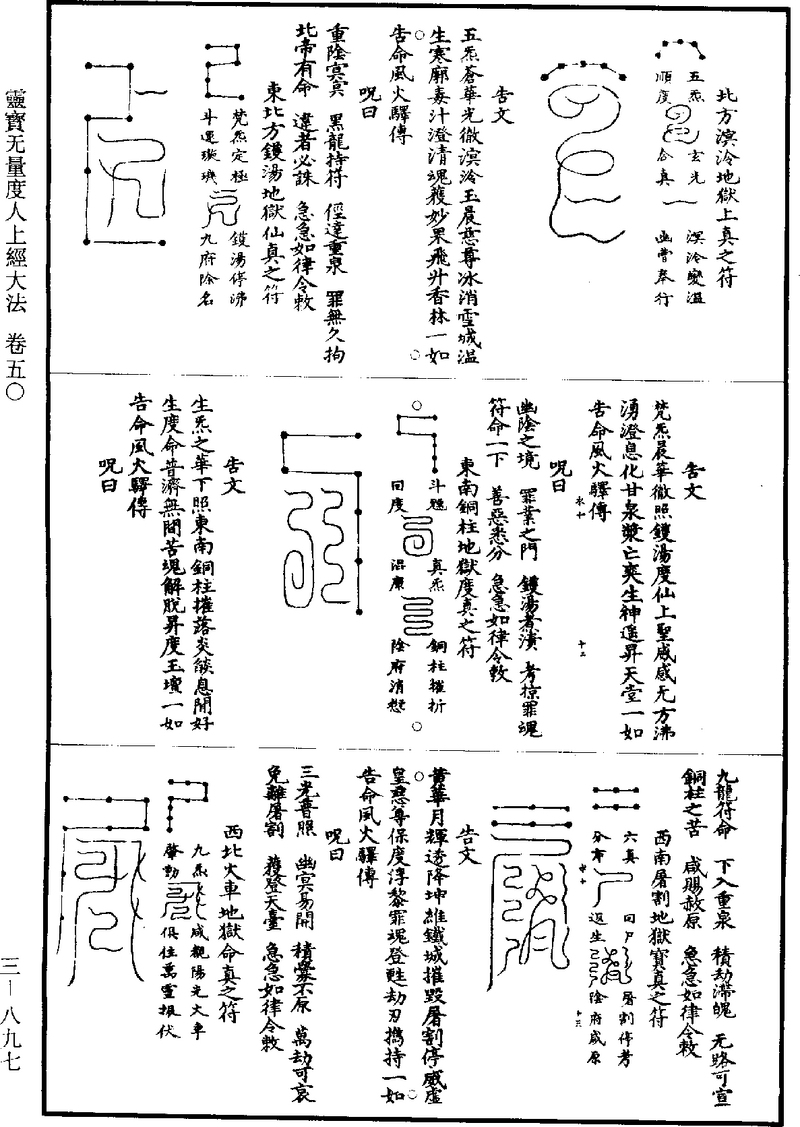 北方溟泠地獄上真之符
五炁　玄光　溟泠變溫
順度　合真　幽曹奉行
告文
五炁蒼華光徹溟泠玉晨慈尊冰消雪城溫
生寒廓毒汁澄清魂蒦妙果飛升香林一如
告命風火驛傳
呪曰
重陰冥冥　黑龍持符　徑達重泉　罪無久拘
北帝有命　違者必誅　急急如律令敕
東北方鑊湯地獄仙真之符
梵炁定極　鑊湯停沸
斗運璇璣　九府除名
告文
梵炁晨華徹照鑊湯度仙上聖咸感无方沸
湧澄息化甘泉漿亡爽生神遥昇天堂一如
告命風火驛傳
呪曰
幽陰之境　罪業之門　鑊湯煮漬　考掠罪魂
符命一下　善惡悉分　急急如律令敕
東南銅柱地獄度真之符
斗魁　真炁　銅柱摧折
回度　沼康　陰府消愆
告文
生炁之華下照東南銅柱摧落炎燄息閒好
生度命普濟無間苦魂解脫昇度玉壇一如
告命風火驛傳
呪曰
九龍符命　下入重泉　積劫滯魄　无路可宣
銅柱之苦　咸賜赦原　急急如律令敕
西南屠割地獄寶真之符
六真　回尸　屠割停考
分布　返生　陰府咸原
告文
黃華月輝透降坤維鐵城摧毀屠割停威虛
皇慈尊保度浮黎罪魂登甦劫刃擕持一如
告命風火驛傳
呪曰
三光普照　幽冥易開　積釁不原　萬劫可哀
免離屠割　蒦登天臺　急急如律令敕
西北火車地獄命真之符
九炁　咸覩陽光火車
肇勳　俱住萬靈振伏
靈寶无量度人上經大法　卷五〇
三—八九七